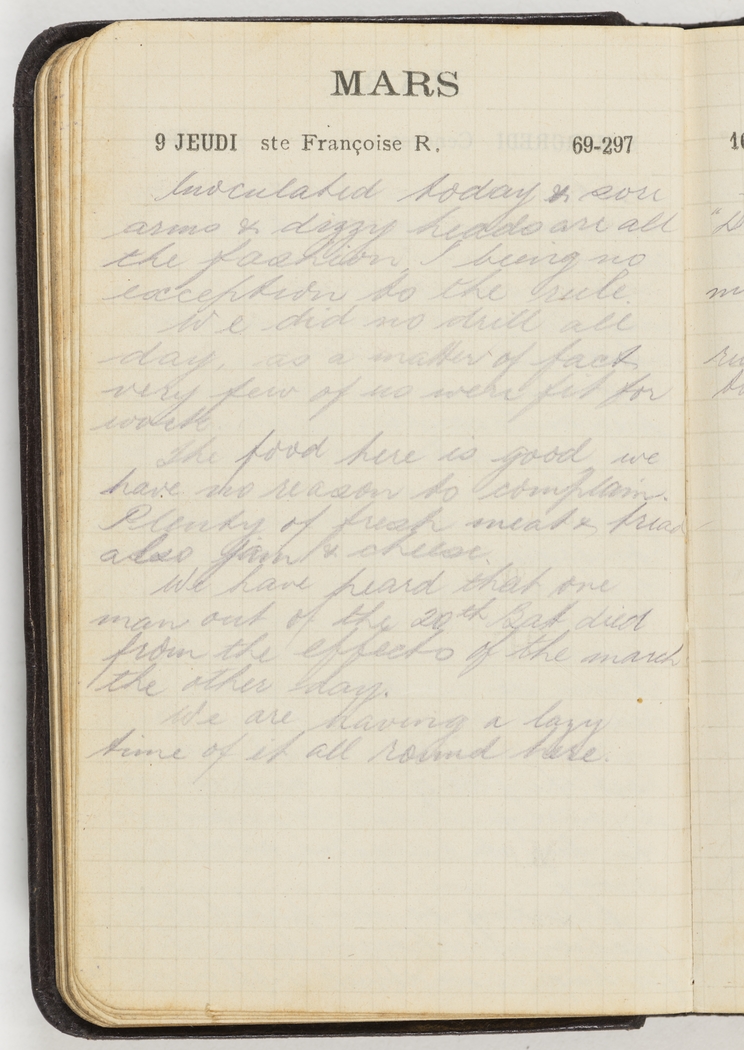 MARS
9 JEUDI ste Françoise R. 69-297
Inoculated today & sore
arms & dizzy heads are all
the fashion, I being no
exception to the rule.
We did no drill all
day, as a matter of fact
very few of us were fit for
work
The food here is good we
have no reason to complain.
Plenty of fresh meat & bread
also jam & cheese.
We have heard that one
man out of the 20th Bat died
from the effects of the march
the other day.
We are having a lazy
time of it all round here.